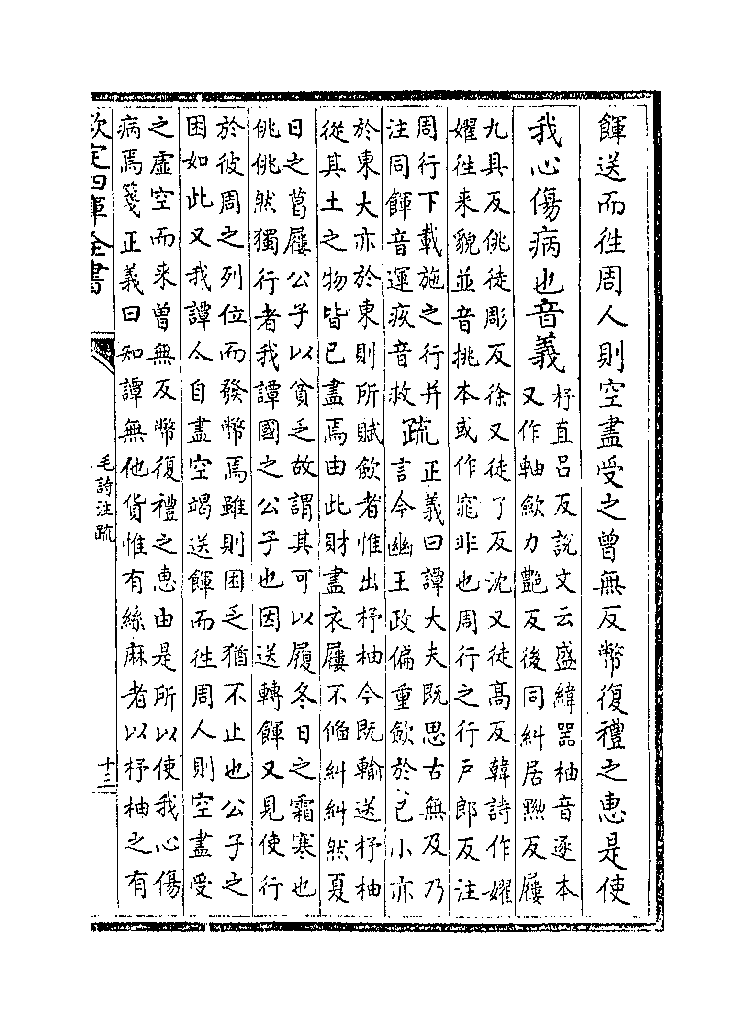 餫送而往周人則空盡受之曾無反幣復禮之惠是使
我心傷病也音義
杼直呂反說文云盛緯器柚音逐本
又作軸歛力艷反後同糾居黝反屨
九具反佻徒彫反徐又徒了反沈又徒高反韓詩作嬥
嬥往來貌並音挑本或作窕非也周行之行戸郎反注
周行下載施之行并
注同餫音運疚音救
疏
正義曰譚大夫既思古無及乃
言今幽王政偏重歛於己小亦
於東大亦於東則所賦歛者惟出杼柚今既輸送杼柚
從其土之物皆已盡焉由此財盡衣屨不脩糾糾然夏
日之葛屨公子以貧乏故謂其可以履冬日之霜寒也
佻佻然獨行者我譚國之公子也因送轉餫又見使行
於彼周之列位而發幣焉雖則困乏猶不止也公子之
困如此又我譚人自盡空竭送餫而往周人則空盡受
之虛空而來曾無反幣復禮之惠由是所以使我心傷
病焉箋正義曰知譚無他貨惟有絲麻者以杼柚之有
欽定四庫全書
毛詩注疏
十三